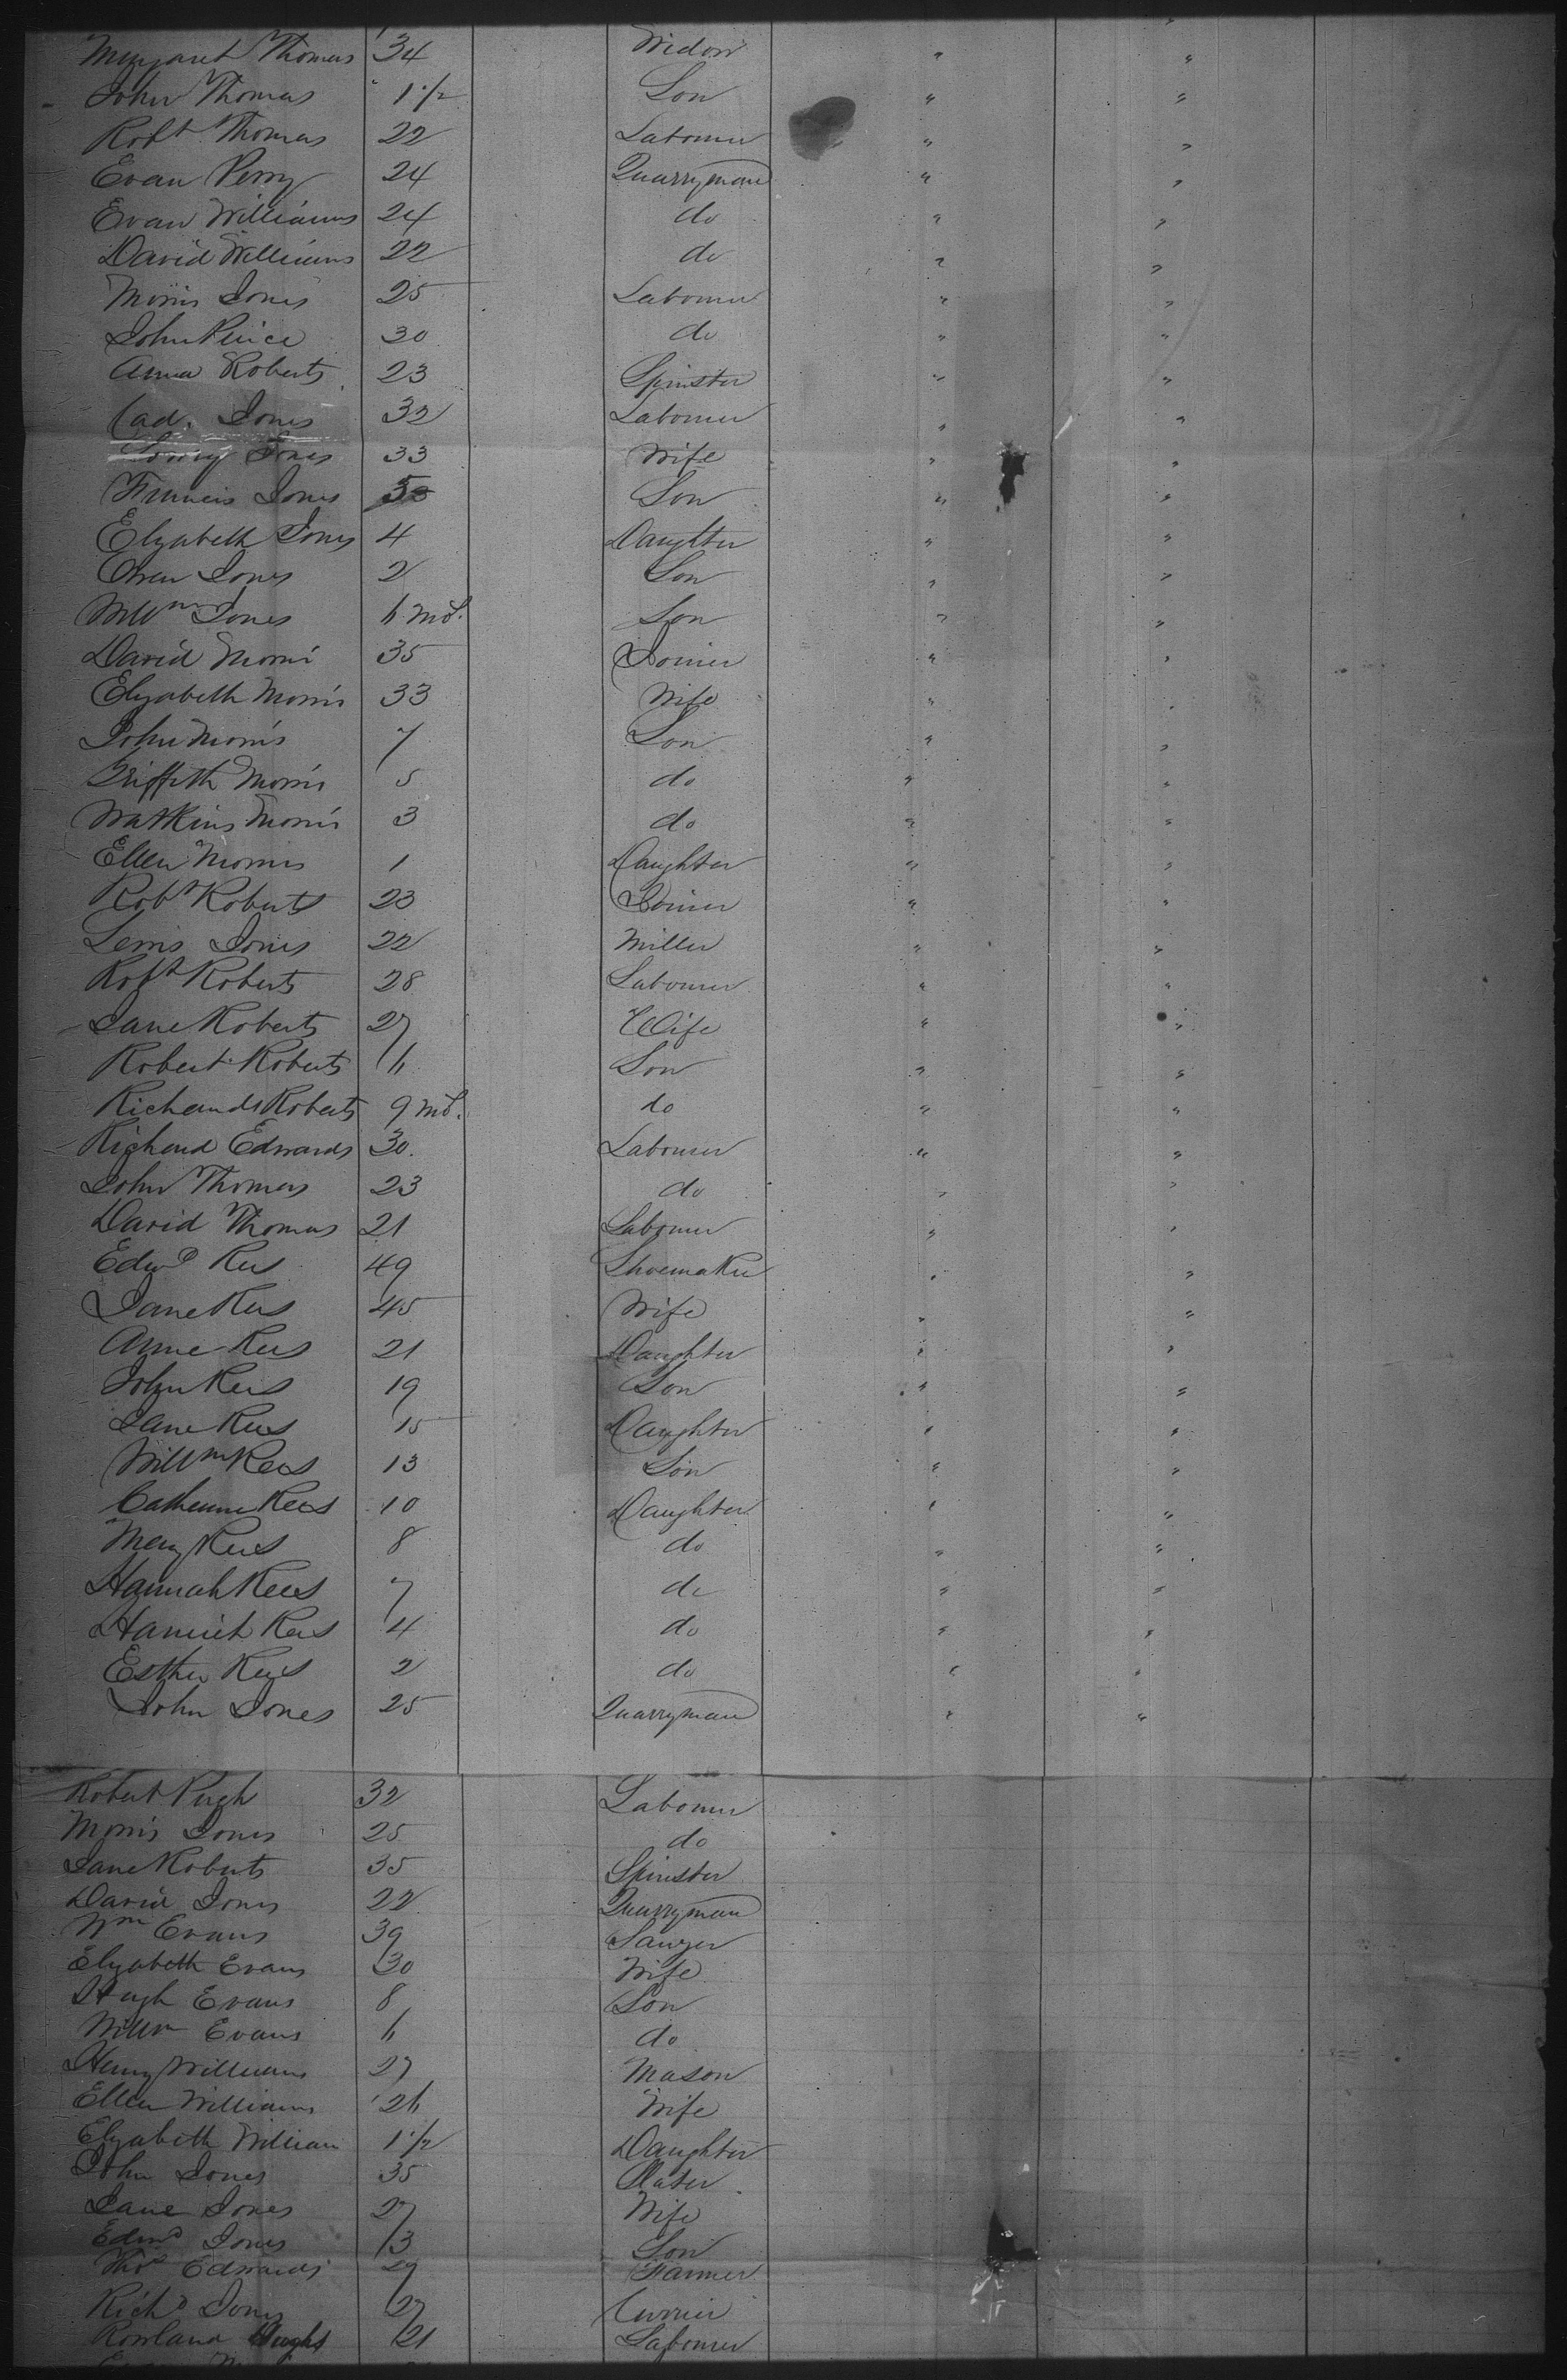 Margaret Thomas 34 Widow " "
John Thomas 1 1/2 Son " "
Robt Thomas 22 Labourer " "
Evan Perry 24 Quarryman " "
Evan Williams 24 do " "
David Williams 22 do " "
Morris Jones 25 Labourer " "
John Peirce 30 do " "
Anna Roberts 23 Spinster " "
Cad. Jones 32 Labourer " "
Lowry Jones 33 Wife " "
Francis Jones Son " "
Elizabeth Jones 4 Daughter " "
Owen Jones 2 Son " "
Willm Jones 6 mos. Son " "
David Morris 35 Joiner " "
Elizabeth Morris 33 Wife " "
John Morris 7 Son " "
Griffith Morris 5 do " "
Watkins Morris 3 do " "
Ellen Morris 1 Daughter " "
Robt Roberts 23 Joiner " "
Lewis Jones 22 Miller " "
Robt Roberts 28 Labourer " "
Jane Roberts 27 Wife " "
Robert Roberts 6 Son " "
Richard Roberts 9 mos. do " "
Richard Edwards 30. Labourer " "
John Thomas 23 do " "
David Thomas 21 Labourer " "
Edwd Rees 49 Shoemaker " "
Jane Rees 45 Wife " "
Anne Rees 21 Daughter " "
John Rees 19 Son " "
Jane Rees 15 Daughter " "
Willm Rees 13 Son " "
Catherine Rees 10 Daughter " "
Mary Rees 8 do " "
Hannah Rees 7 do " "
Harriet Rees 4 do " "
Esther Rees 2 do " "
John Jones 25 Quarryman " "
Robert Pugh 32 Labourer
Morris Jones 25 do
Jane Roberts 35 Spinster
David Jones 22 Quarryman
Wm Evans 39 Sawyer
Elizabeth Evans 30 Wife
Hugh Evans 8 Son
Willm Evans 6 do
Henry Williams 27 Mason
Ellen Williams 26 Wife
Elizabeth William 1 1/2 Daughter
John Jones 35 Slater
Jane Jones 27 Wife
Edwd Jones 3 Son
Thos Edwards 29 Farmer
Richd Jones 27 Currier
Rowland Hughs 21 Labourer